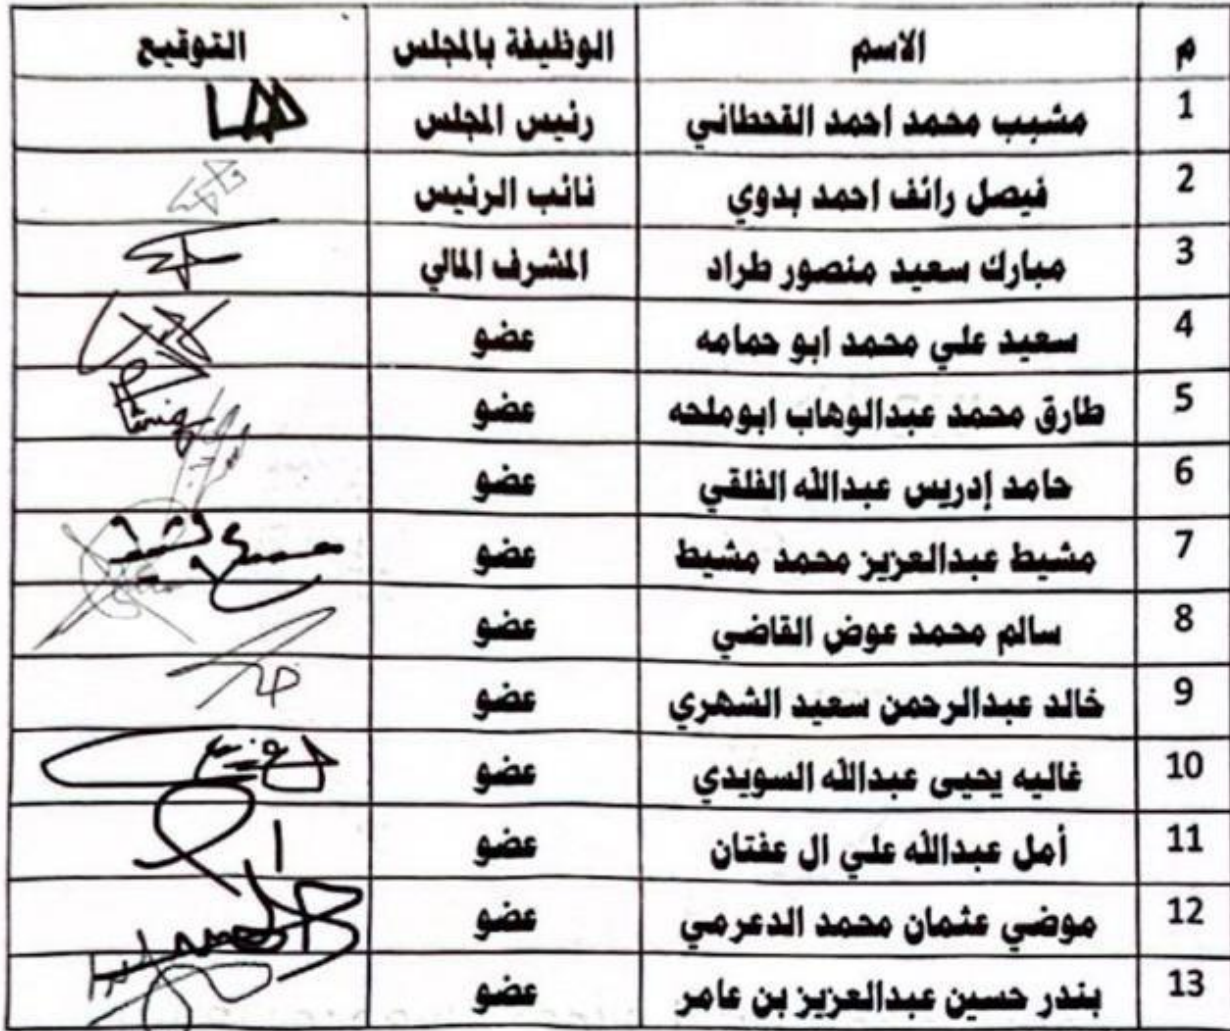 م الاسم الوظيفة بالمجلس التوقيع
1 مشبب محمد احمد القحطاني رئيس المجلس
2 فيصل رائف احمد بدوي نائب الرئيس
3 مبارك سعيد منصور طراد المشرف المالي
4 سعيد علي محمد ابو حمامه عضو
5 طارق محمد عبدالوهاب ابوملحه عضو
6 حامد إدريس عبدالله الفلقي عضو
7 مشيط عبدالعزيز محمد مشيط عضو
8 سالم محمد عوض القاضي عضو
9 خالد عبدالرحمن سعيد الشهري عضو
10 غاليه يحيى عبدالله السويدي عضو
11 أمل عبدالله علي ال عفتان عضو
12 موضي عثمان محمد الدعرمي عضو
13 بندر حسين عبدالعزيز بن عامر عضو